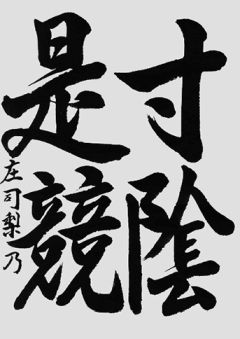 寸陰
是競
庄司梨乃